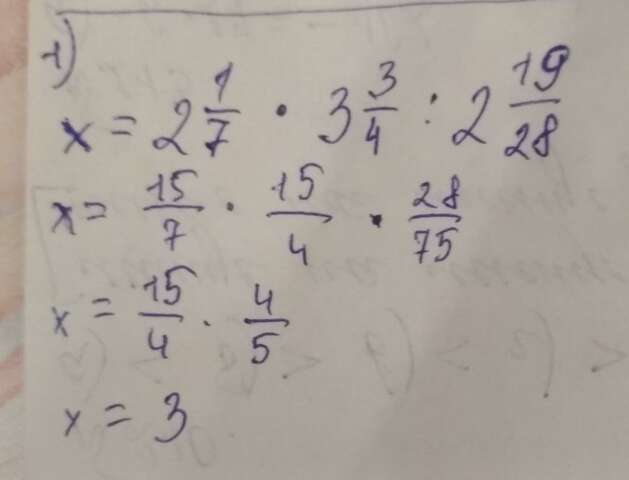 1)
x = 2 1/7 · 3 3/4 : 2 19/28
x = 15/7 · 15/4 · 28/75
x = 15/4 · 4/5
x = 3